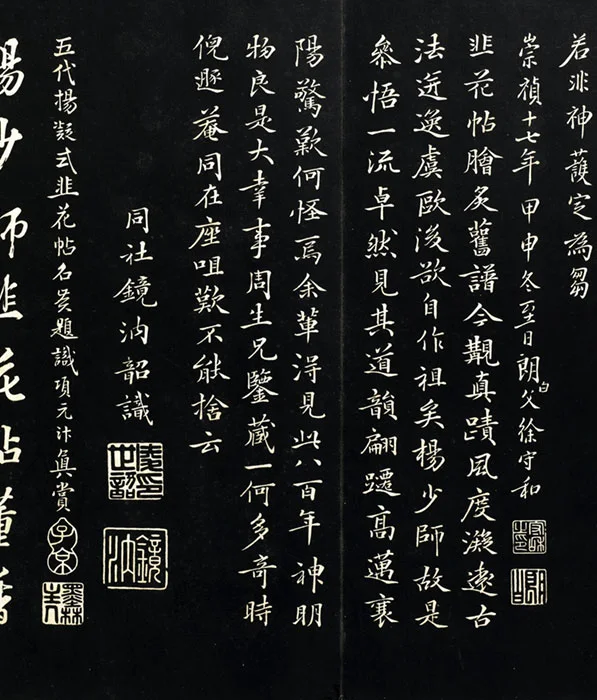 若非神護定為芻
崇禎十七年甲申冬至日朗白父徐守和
韭花帖膾炙舊譜今覯真蹟風度凝遠古
法迸逸虞歐後欲自作祖矣楊少師故是
叅悟一流卓然見其道韻翩躚高邁襄
陽驚歎何怪焉余輩淂見此八百年神明
物良是大幸事周生兄鑒藏一何多奇時
倪遯菴同在座咀歎不能捨云
同社鏡汭韶識
凌世韶印
鏡汭
五代楊凝式韭花帖名賢題識項元汴真賞
子京
楊少師韭花帖董